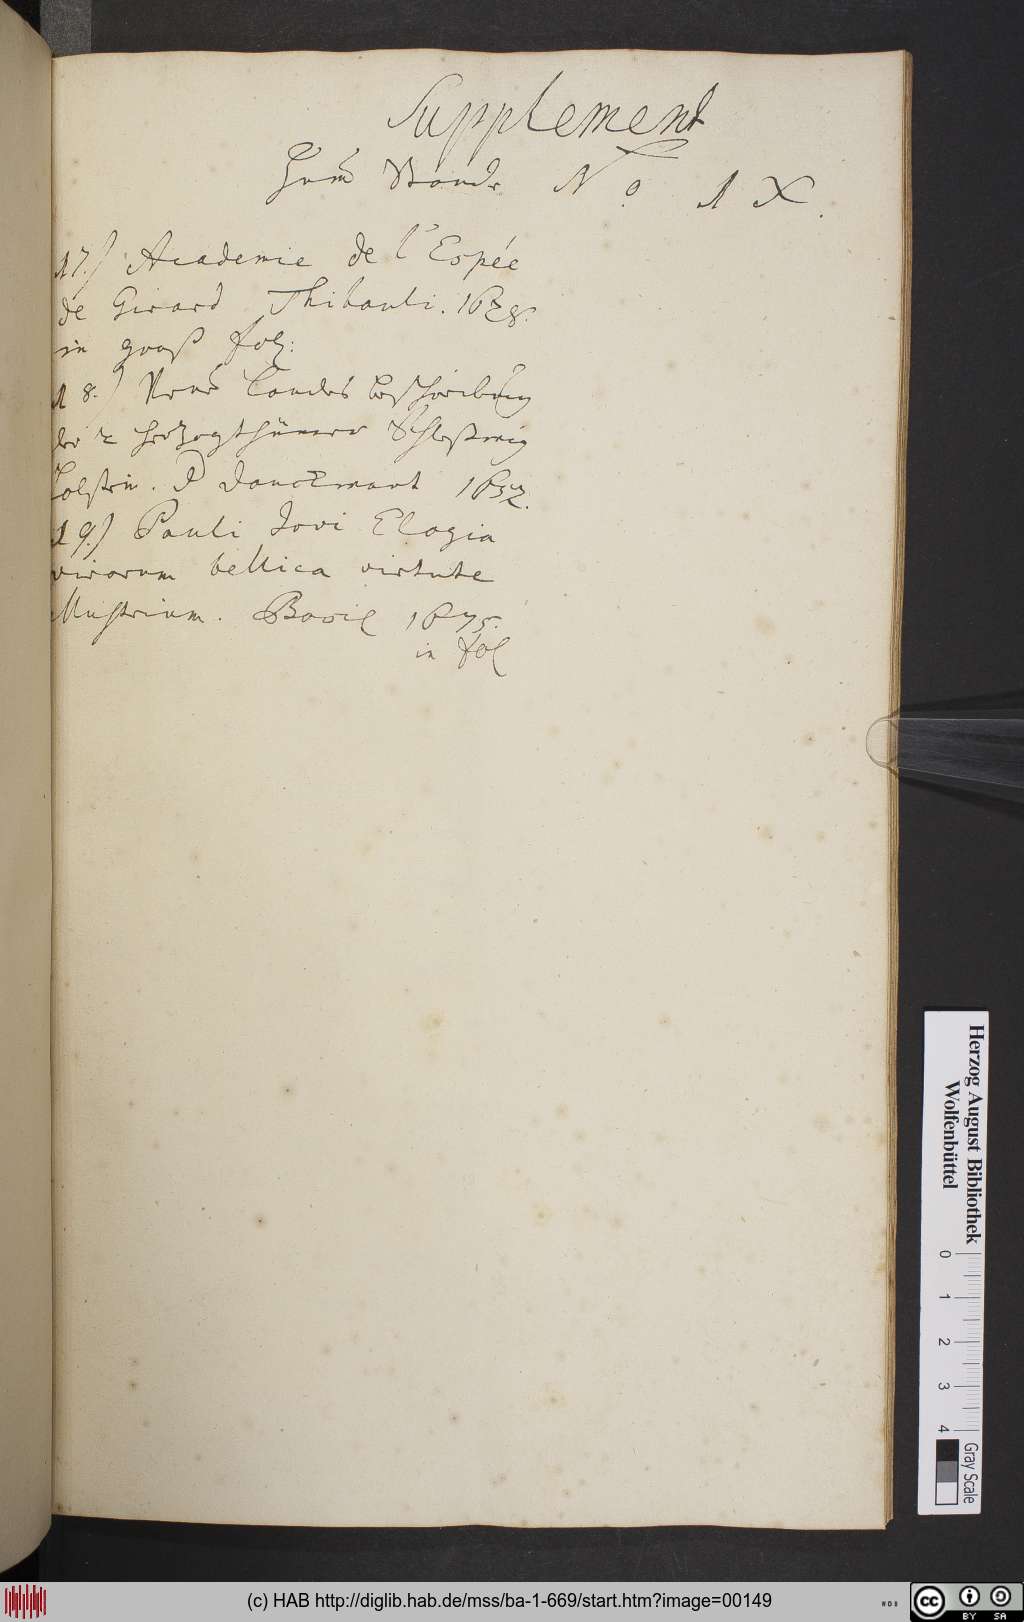 Supplement
Zum Stande No 1 X.
17.) Academie de l'Espée
de Girard Thibault. 1628.
in groß fol:
18.) Neue Landes beschreibung
der 2 Herzogthümer Schleßwig
Holstein. D Danckwart 1652.
19.) Pauli Jovi Elogia
virorum bellica virtute
illustrium. Basil 1575.
in fol
Herzog August Bibliothek
Wolfenbüttel
0 1 2 3 4
Gray Scale
(c) HAB http://diglib.hab.de/mss/ba-1-669/start.htm?image=00149
WDB
cc BY SA